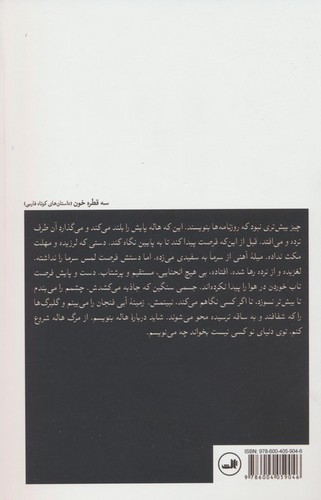 سه قطره خون (داستان‌های کوتاه فارسی)
چیز بیش‌تری نبود که روزنامه‌ها بنویسند. این که هاله پایش را بلند می‌کند و می‌گذارد آن طرف
نرده و می‌افتد. قبل از این‌که فرصت پیدا کند تا به پایین نگاه کند. دستی که لرزیده و مهلت
مکث نداده. میلهٔ آهنی از سرما به سفیدی می‌زده. اما دستش فرصت لمس سرما را نداشته.
لغزیده و از نرده رها شده. افتاده. بی هیچ انحنایی. مستقیم و پرشتاب. دست و پایش فرصت
تاب خوردن در هوا را پیدا نکرده‌اند. جسمی سنگین که جاذبه می‌کشدش. چشمم را می‌بندم
تا بیش‌تر نسوزد. تا اگر کسی نگاهم می‌کند، نبینمش. زمینهٔ آبی فنجان را می‌بینم و گلبرگ‌ها
را که شفافند و به ساقه نرسیده محو می‌شوند. شاید دربارهٔ هاله بنویسم. از مرگ هاله شروع
کنم. توی دنیای نو کسی نیست بخواند چه می‌نویسم.
ISBN: 978-600-405-904-6
9 786004 059046
ثالث